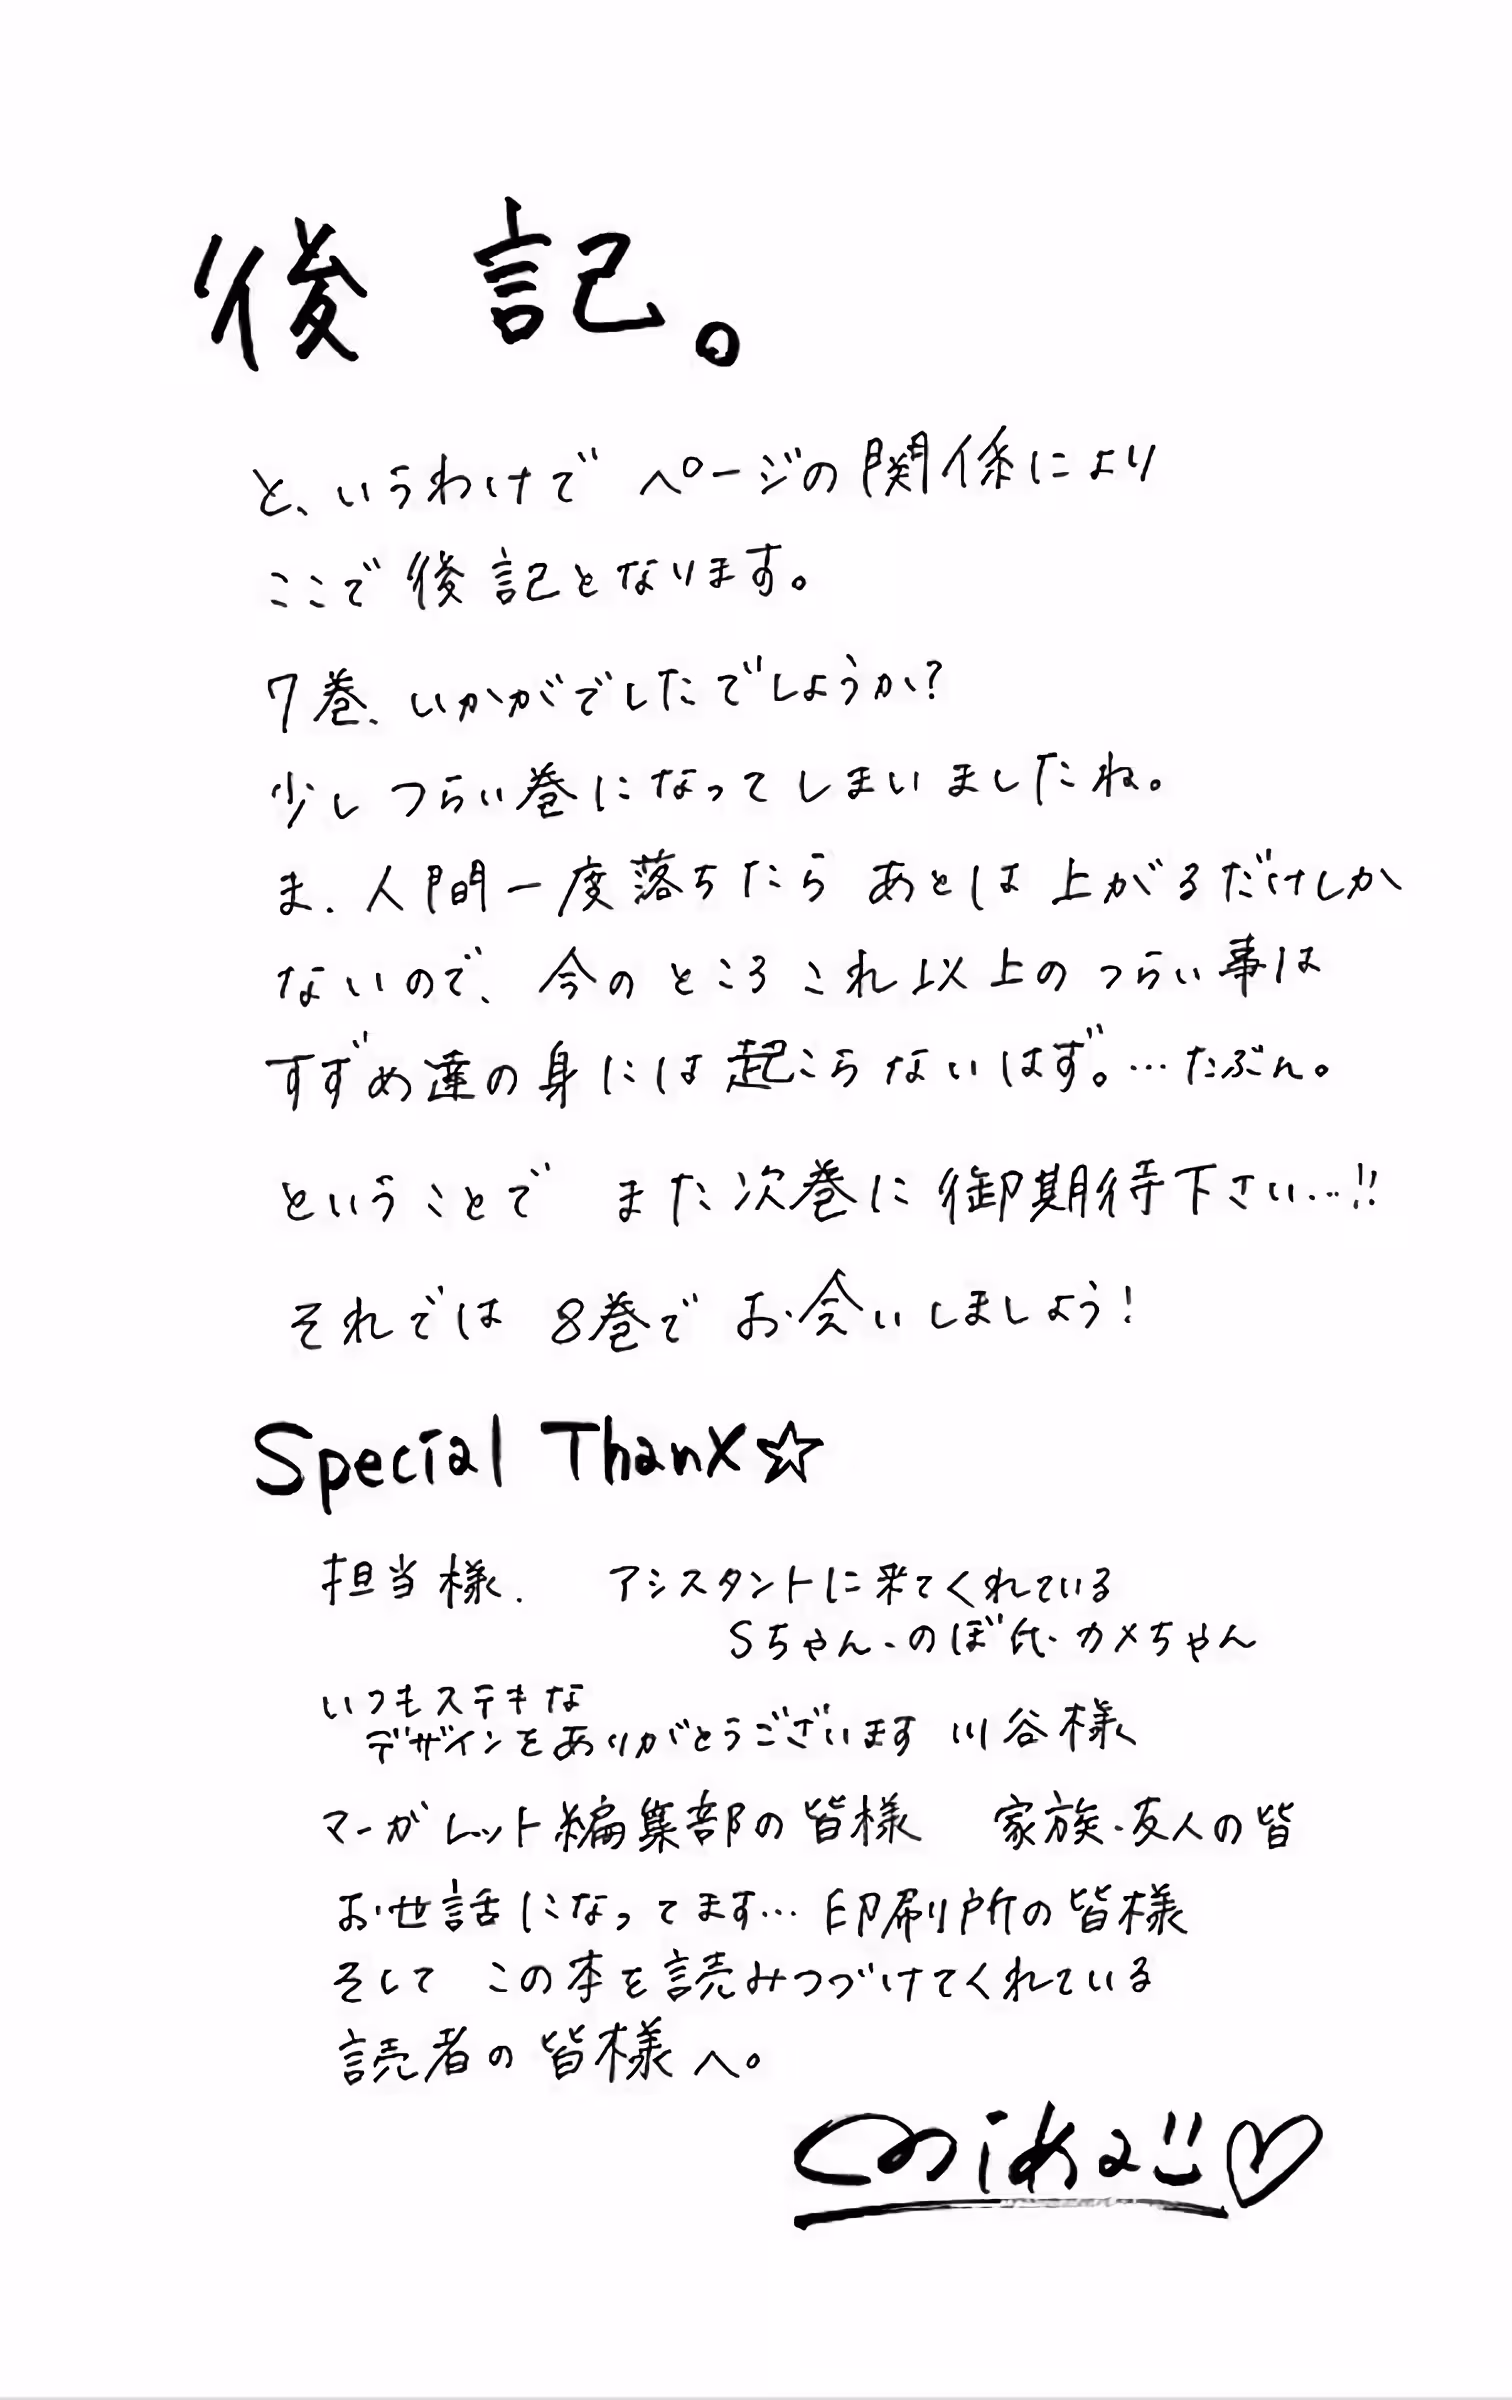 後記。
と、いうわけで ページの関係により
ここで後記となります。
7巻、いかがでしたでしょうか?
少しつらい巻になってしまいましたね。
ま、人間一度落ちたら あとは上がるだけしか
ないので、今のところこれ以上のつらい事は
すずめ達の身には起こらないはず。…たぶん。
ということで また次巻に御期待下さい…!!
それでは 8巻で お会いしましょう!
Special Thanx☆
担当様、 アシスタントに来てくれている
Sちゃん・のぼ氏・カメちゃん
いつもステキな
デザインをありがとうございます 川谷様
マーガレット編集部の皆様 家族・友人の皆
お世話になってます… 印刷所の皆様
そして この本を読みつづけてくれている
読者の皆様へ。